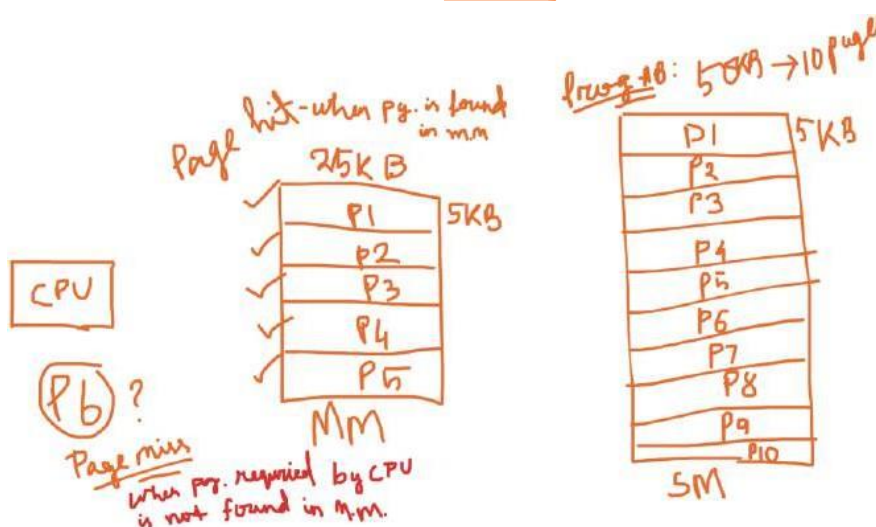 Page hit - when pg. is found
in m.m
25KB
P1
5KB
P2
P3
P4
P5
MM
CPU
P6 ?
Page miss
when pg. required by CPU
is not found in M.M.
Prog AB: 50KB → 10 page
P1
5KB
P2
P3
P4
P5
P6
P7
P8
P9
P10
SM